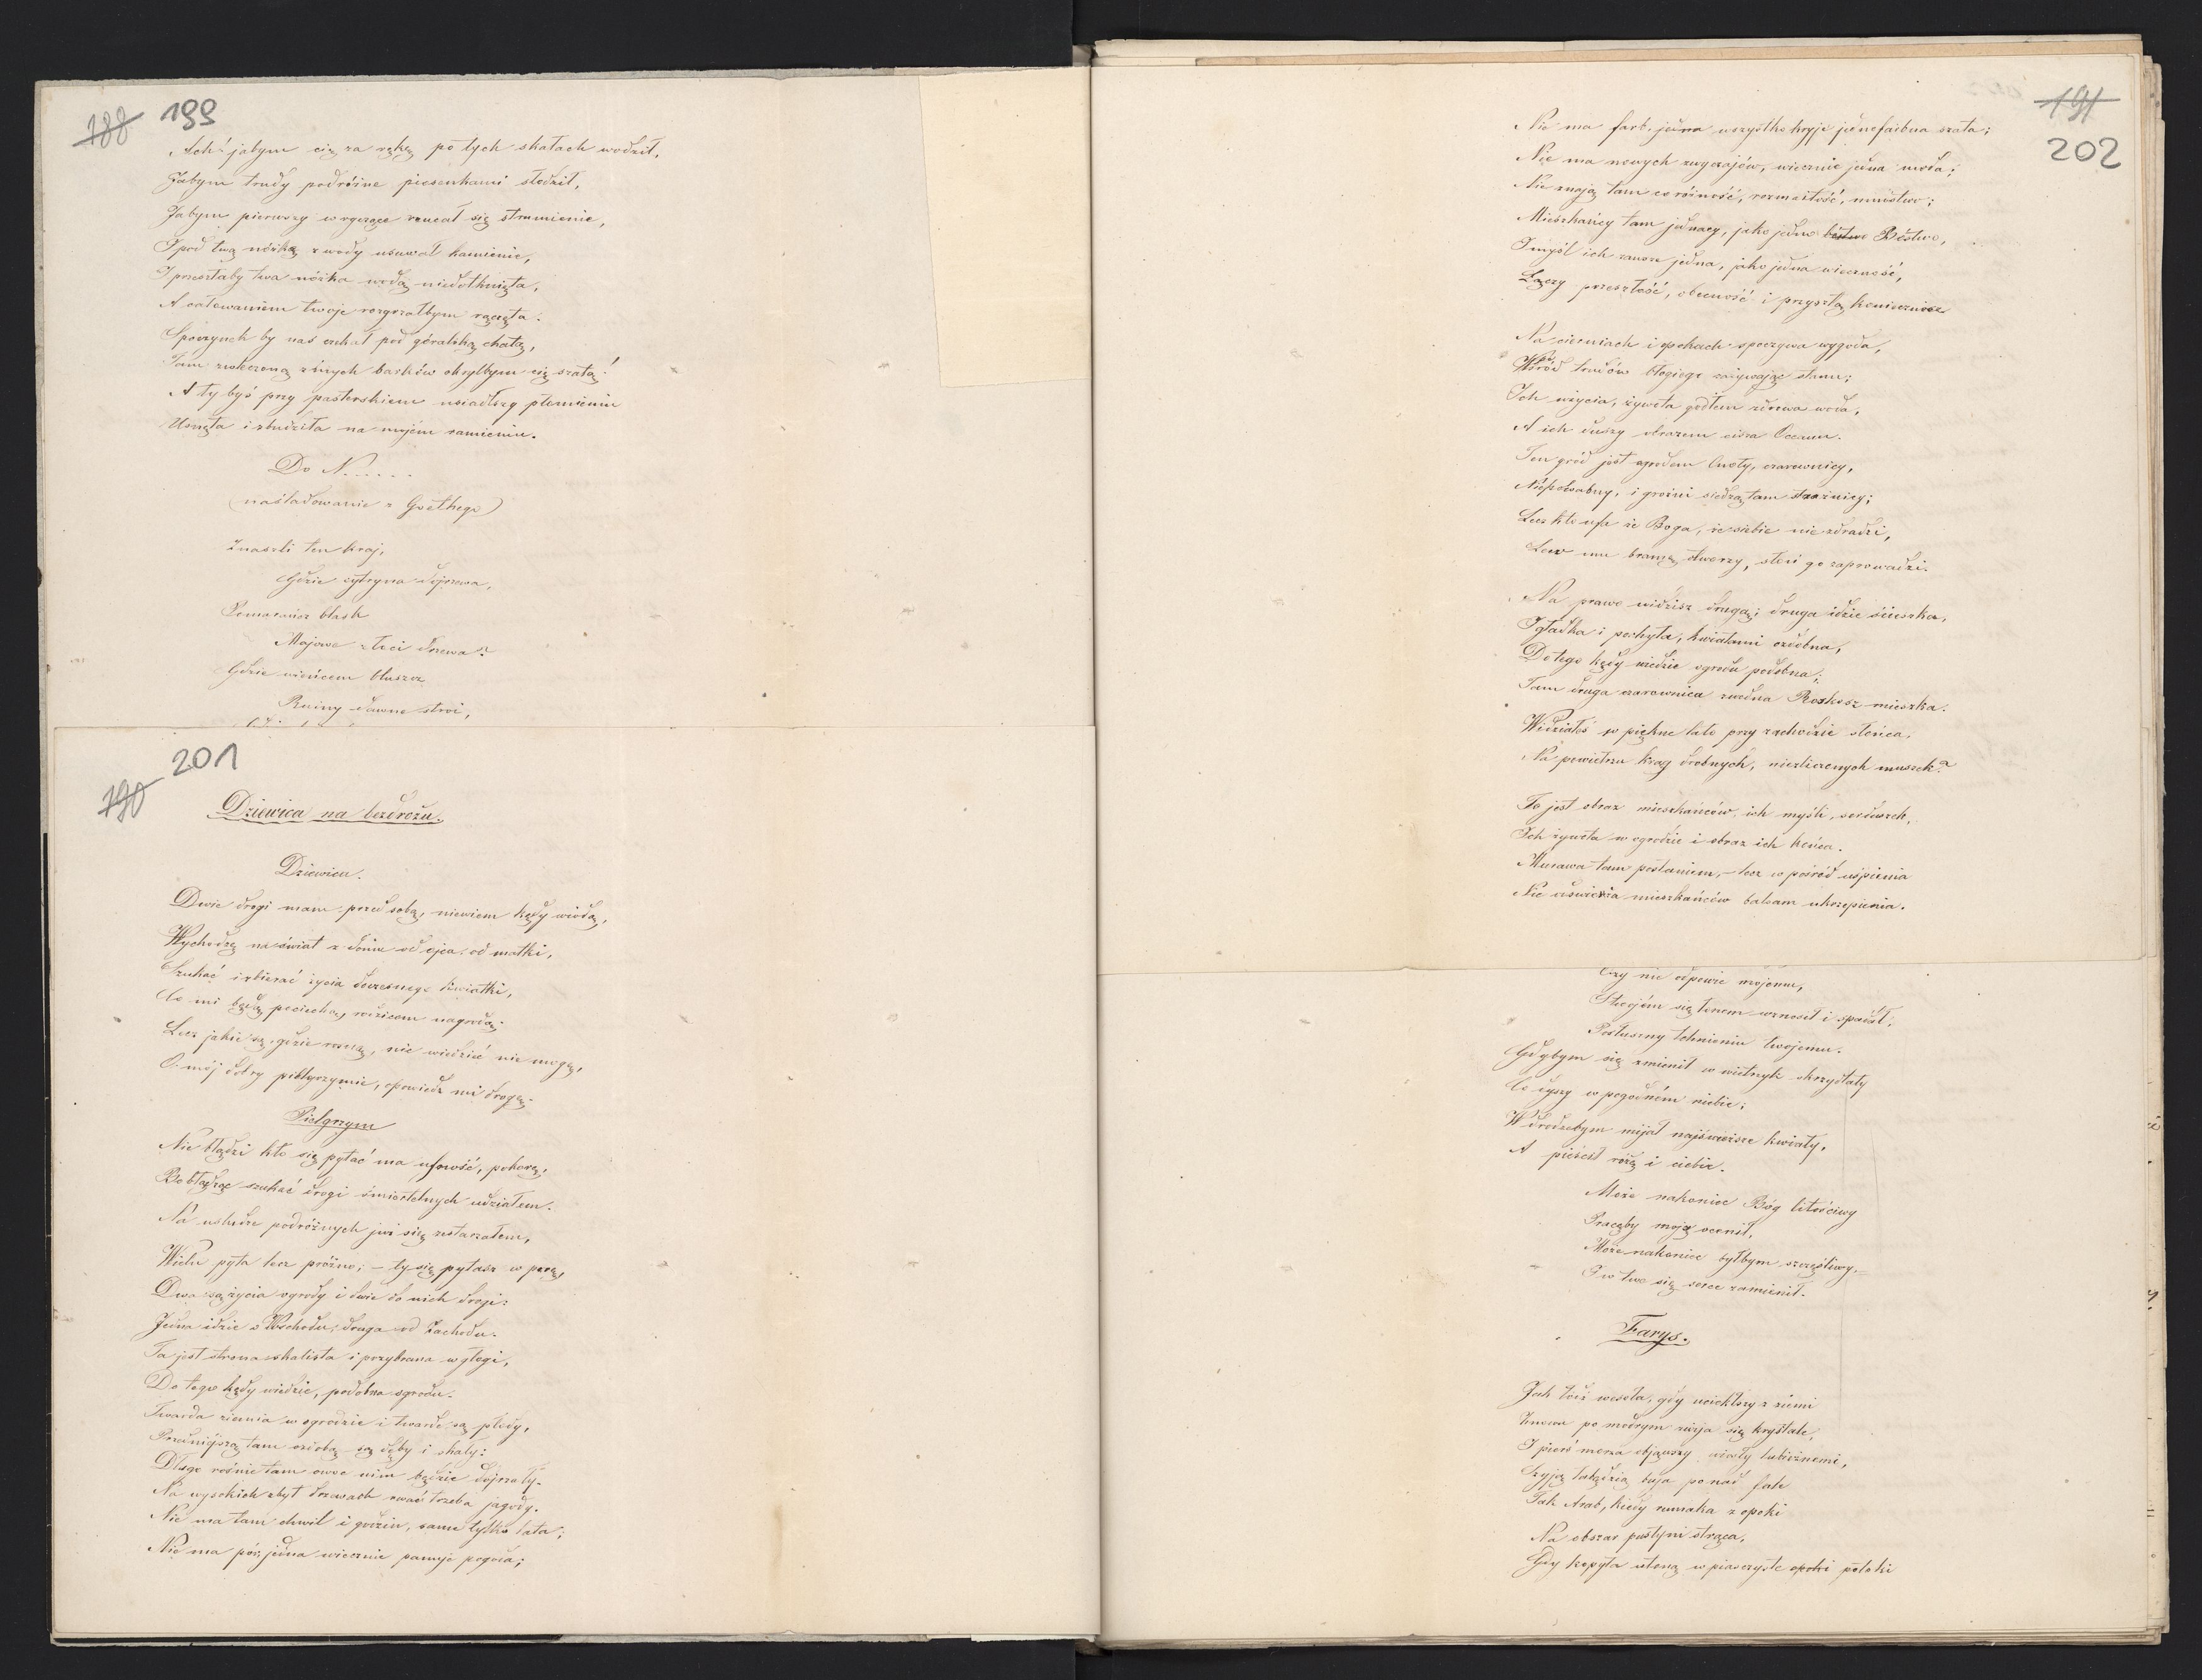 188 199
Ach! jabym cię za rękę po tych skałach wodził,
Jabym trudy podróżne piosenkami słodził,
Jabym pierwszy w ryczące rzucał się strumienie,
I pod twą nóżkę z wody usuwał kamienie,
I przeszłaby twa nóżka wodą niedotknięta,
A całowaniem twoje rozgrzałbym rączęta.
Spoczynek by nas czekał pod góralską chatą,
Tam zwleczoną z mych barków okryłbym cię szatą!
A ty byś przy pasterskiem usiadłszy płomieniu
Usnęła i zbudziła na mojém ramieniu.
Do N.....
(naśladowanie z Goethego)
Znaszli ten kraj,
Gdzie cytryna dojrzewa,
Pomarańcz blask
Majowe złoci drzewa?
Gdzie wieńcem bluszcz
Ruiny dawne stroi,
190 201
Dziewica na bezdrożu.
Dziewica.
Dwie drogi mam przed sobą, niewiem kędy wiodą,
Wychodzę na świat z domu od ojca, od matki,
Szukać i zbierać życia doczesnego kwiatki,
Co mi będą pociechą, rodzicom nagrodą.
Lecz jakie są, gdzie rosną, nic wiedzieć nie mogę,
O mój dobry pielgrzymie, opowiedz mi drogę.
Pielgrzym
Nie błądzi kto się pytać ma ufność, pokorę,
Bo błądząc szukać drogi śmiertelnych udziałem.
Na usłudze podróżnych już się zestarzałem,
Wielu pyta lecz próżno; – ty się pytasz w porę,
Dwa są życia ogrody i dwie do nich drogi:
Jedna idzie o Wschodu, druga od Zachodu.
Ta jest stroma skalista i przybrana w głogi,
Do tego kędy wiedzie, podobna ogrodu.
Twarda ziemia w ogrodzie i twarde są płody,
Przedniejszą tam ozdobą są dęby i skały:
Długo rośnie tam owoc nim będzie dojrzały.
Na wysokich zbyt drzewach rwać trzeba jagody.
Nie ma tam chwil i godzin, same tylko lata;
Nie ma pór, jedna wiecznie panuje pogoda;
191
202
Nie ma farb, jedna wszystko kryje jednofarbna szata;
Nie ma nowych zwyczajów, wiecznie jedna moda;
Nie znają tam co różność, rozmaitość, mnóstwo;
Mieszkańcy tam jednacy, jako jedno bóstwo Bóstwo,
I myśl ich zawsze jedna, jako jedna wieczność,
Łączy przeszłość, obecność i przyszłą konieczność
Na cierniach i opokach spoczywa wygoda,
Wpośród trudów błogiego zażywając stanu;
Ich użycia, żywota godłem zdrowa woda,
A ich duszy obrazem cisza Oceanu.
Ten gród jest ogrodem Cnoty, czarownicy,
Niepowabny, i groźni siedzą tam strażnicy;
Lecz kto ufa że Boga, że siebie nie zdradzi,
Lew mu bramę otworzy, słoń go zaprowadzi.
Na prawo widzisz drugą; druga idzie ścieszka,
I gładka i pochyła, kwiatami ozdobna,
Do tego kędy wiedzie ogrodu podobna;
Tam druga czarownica zwodna Rozkosz mieszka.
Widziałeś w piękne lato przy zachodzie słońca,
Na powietrzu krąg drobnych, niezliczonych muszek?
To jest obraz mieszkańców, ich myśli, serduszek,
Ich żywota w ogrodzie i obraz ich końca.
Murawa tam posłaniem, – lecz w pośród uśpienia
Nie uświeża mieszkańców balsam ukrzepienia.
Czy nie odpowie mojemu,
Stęsknionym się tonem wznosił i spadał,
Posłuszny tchnieniu twojemu.
Gdybym się zmienił w wietrzyk skrzydlaty
Co dyszy w pogodném niebie;
W drodzebym mijał najświeższe kwiaty,
A pieścił różę i ciebie.
Może nakoniec Bóg litościwy
Pracęby moję ocenił,
Może nakoniec byłbym szczęśliwy,
I w twe się serce zamienił.
Farys.
Jak łódź wesoła, gdy uciekłszy z ziemi
Znowu po modrym zwija się krysztale,
I pierś morza objąwszy wiosły lubieżnemi,
Szyją łabędzią buja ponad fale
Tak Arab, kiedy rumaka z opoki
Na obszar pustyni strąca,
Gdy kopyta utoną w piaszczyste opoki potoki